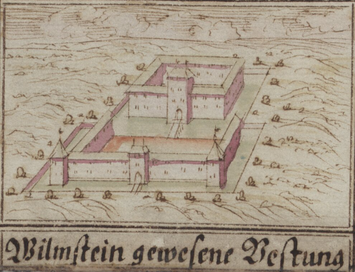 Wilmstein gewesene Vestung